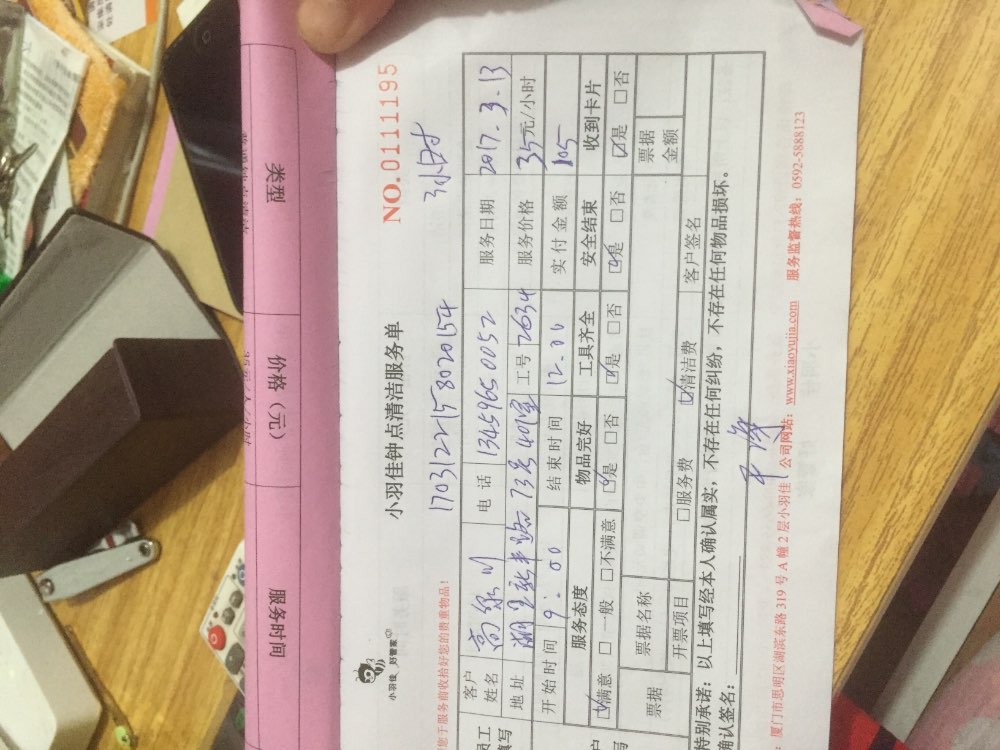 小羽佳 好管家
小羽佳钟点清洁服务单
NO.0111195
1703122158020154
您于服务前收拾好您的贵重物品!
客户姓名 电话 13459650052 服务日期 2017.3.13
地址 73号401室 工号 2634 服务价格 35元/小时
开始时间 9:00 结束时间 12.00 实付金额 105
服务态度 物品完好 工具齐全 安全结束 收到卡片
满意 一般 不满意 是 否 是 否 是 否 是 否
票据 票据名称 票据金额
开票项目 服务费 清洁费 客户签名
特别承诺:以上填写经本人确认属实,不存在任何纠纷,不存在任何物品损坏。
确认签名:
厦门市思明区湖滨东路 319 号 A 幢 2 层小羽佳 公司网站:www.xiaoyujia.com 服务监督热线:0592-5888123
类型
价格(元)
服务时间